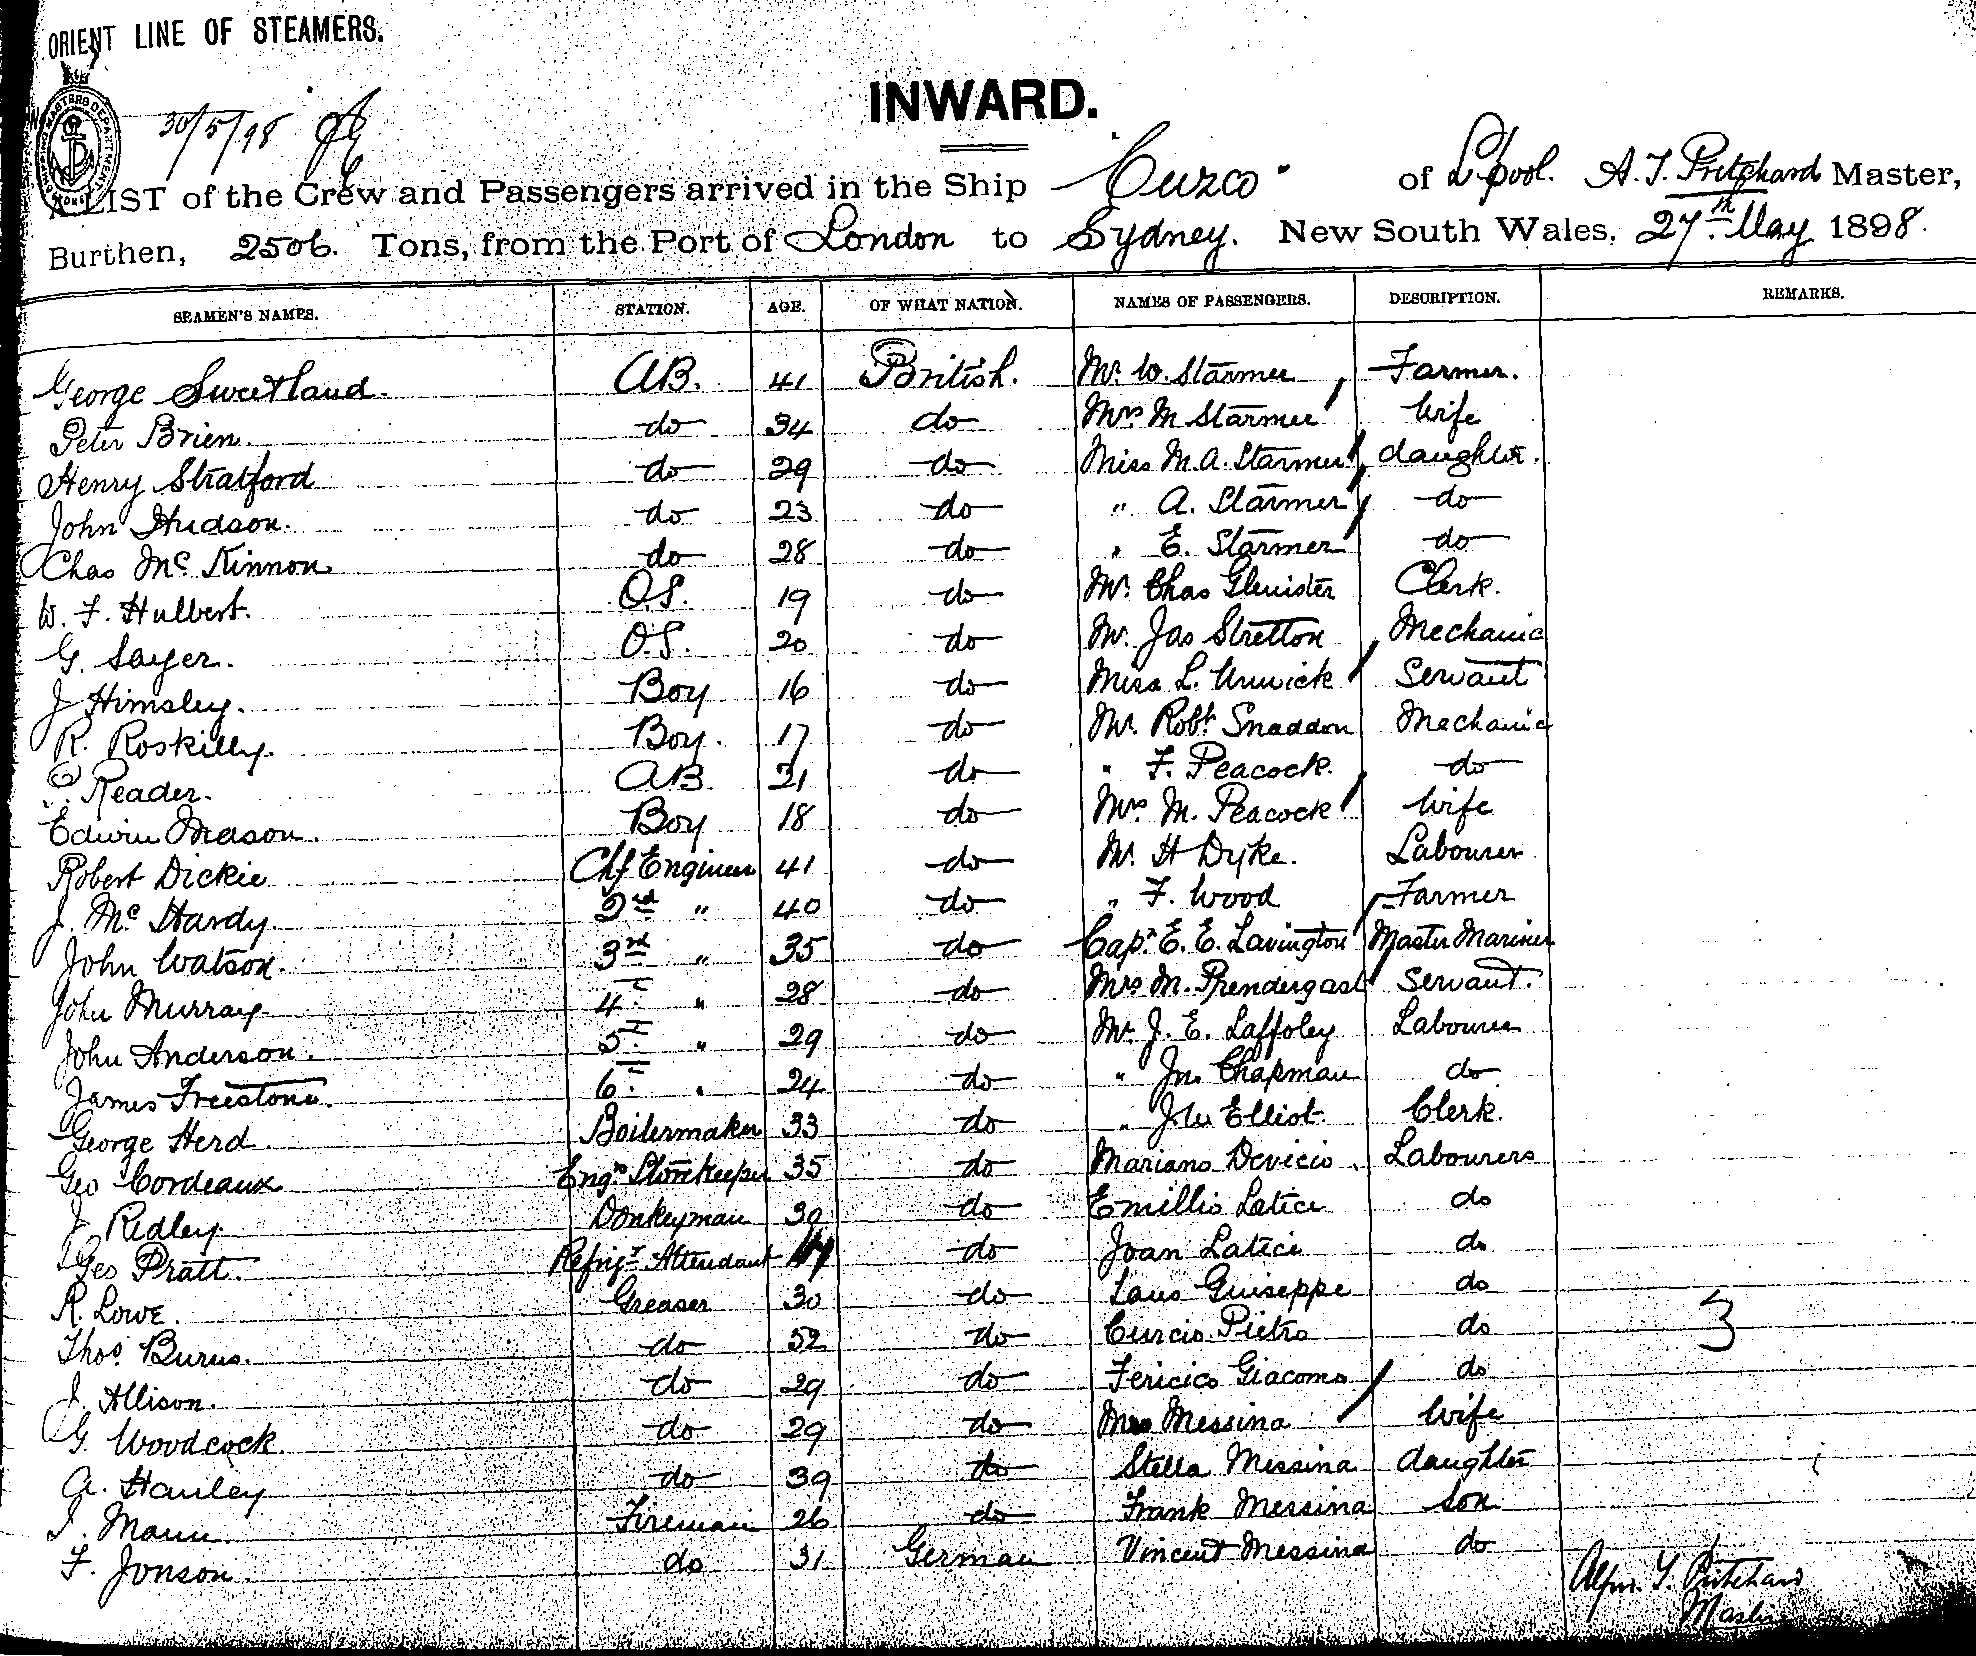 ORIENT LINE OF STEAMERS.
30/5/98
INWARD.
LIST of the Crew and Passengers arrived in the Ship "Cuzco" of L'pool. A. J. Pritchard Master,
Burthen, 2506. Tons, from the Port of London to Sydney. New South Wales, 27th May 1898.
SEAMEN'S NAMES. STATION. AGE. OF WHAT NATION. NAMES OF PASSENGERS. DESCRIPTION. REMARKS.
George Sweetland. AB. 41 British. Mr. W. Starmer Farmer.
Peter Brien. do 34 do Mrs M Starmer Wife
Henry Stratford do 29 do Miss M. A. Starmer daughter.
John Hudson. do 23 do " A. Starmer do
Chas McKinnon do 28 do " E. Starmer do
W. F. Hulbert. O.S. 19 do Mr. Chas Glenister Clerk.
G. Sayer. O.S. 20 do Mr. Jas Stretton Mechanic
J Himsley. Boy 16 do Miss L. Unwick Servant
R. Roskilly. Boy. 17 do Mr. Robt Snaddon Mechanic
Reader. AB. 21 do " F. Peacock. do
Edwin Mason. Boy 18 do Mrs. M. Peacock Wife
Robert Dickie Chf Engineer 41 do Mr. H Dyke. Labourer
J. Mc Hardy. 2nd " 40 do " F. Wood Farmer
John Watson. 3rd " 35 do Capt. E. E. Lavington Master Mariner
John Murray 4 " 28 do Mrs M. Prendergast Servant.
John Anderson. 5 " 29 do Mr. J. E. Laffoley Labourer
James Freestone. 6 " 24 do " Jn. Chapman do
George Herd. Boilermaker 33 do " J W Elliot. Clerk.
Geo Cordeaux Engrs Storekeeper 35 do Mariano Devicio Labourers
J Ridley. Donkeyman 39 do Emillio Latici do
Geo Pratt. Refrigr Attendant do Joan Latici do
R. Lowe. Greaser 30 do Laus Guiseppe do
Thos. Burns. do 52 do Curcio Pietro do 3
J. Allison. do 29 do Fericico Giacomo do
G. Woodcock. do 29 do Mrs Messina Wife
A. Hanley do 39 do Stella Messina daughter
Mann. Fireman 26 do Frank Messina son
F. Jonson. do 31 German Vincent Messina do
Pritchard
Master